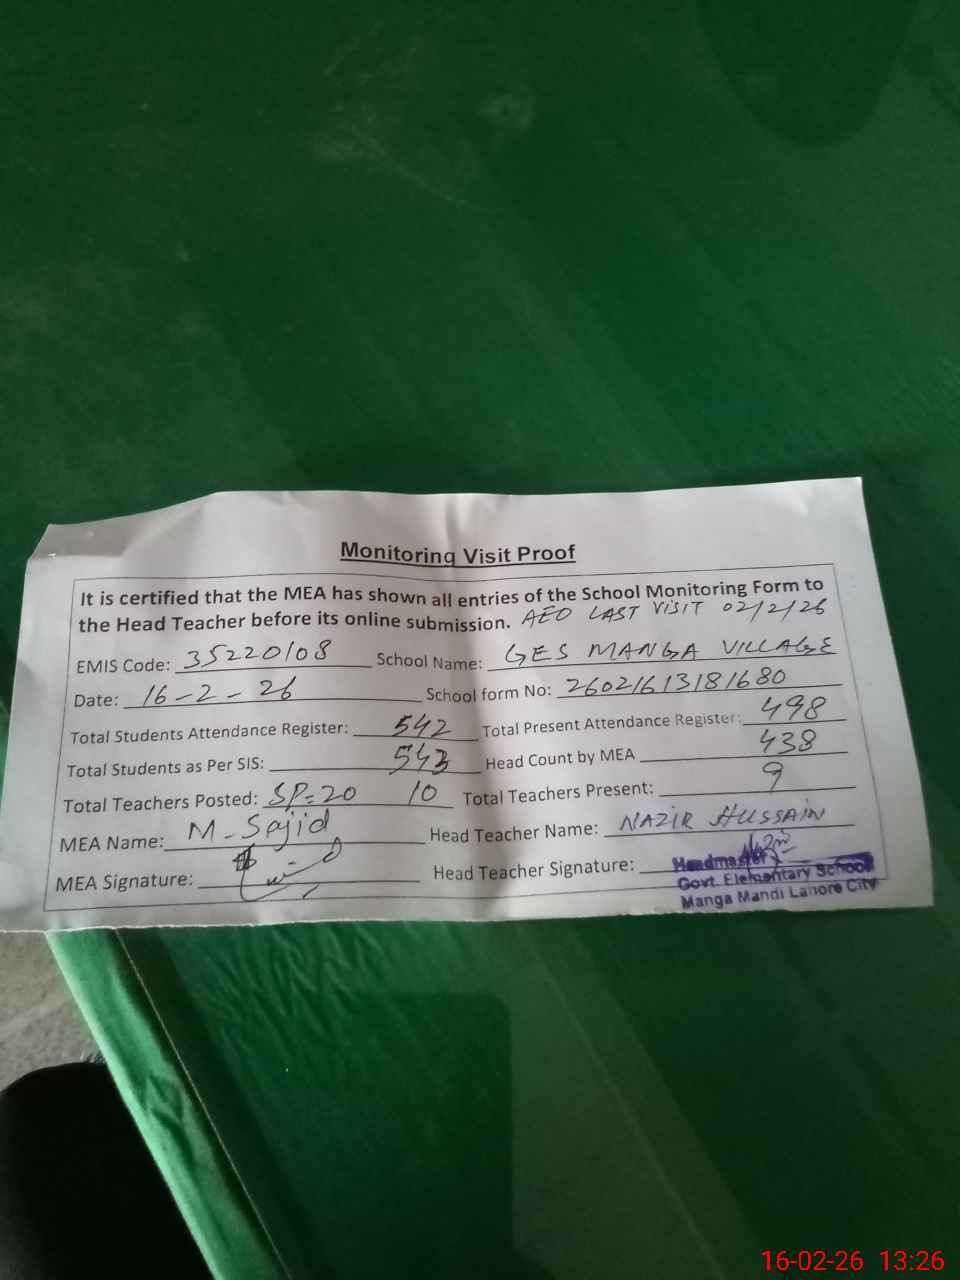 Monitoring Visit Proof
It is certified that the MEA has shown all entries of the School Monitoring Form to
the Head Teacher before its online submission. AEO LAST VISIT 02/2/26
EMIS Code: 35220108 School Name: GES MANGA VILLAGE
Date: 16-2-26 School form No: 26021613181680
Total Students Attendance Register: 542 Total Present Attendance Register: 498
Total Students as Per SIS: 543 Head Count by MEA 438
Total Teachers Posted: SP=20 10 Total Teachers Present: 9
MEA Name: M-Sajid Head Teacher Name: NAZIR HUSSAIN
MEA Signature: Head Teacher Signature:
Headmaster
Govt. Elementary School
Manga Mandi Lahore City
16-02-26 13:26